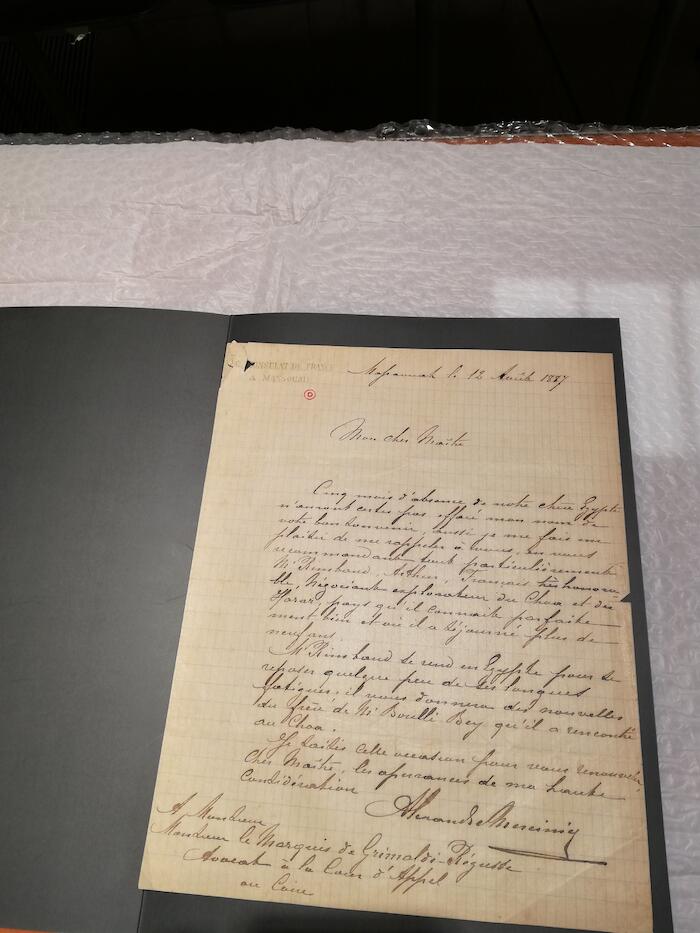 CONSULAT DE FRANCE
A MASSOUAH
Massouah le 12 Août 1887
Mon cher Maître
Cinq mois d'absence de notre chere Egypte
n'auront certes pas effacé mon nom de
votre bon souvenir, aussi je me fais un
plaisir de me rappeler à vous, en vous
recommandant tout particulièrement
Mr Rimbaud, Arthur, Français très honora
ble, Négociant explorateur du Choa et du
Harar, pays qu'il connait parfaite
ment bien et où il a séjourné plus de
neuf ans.
Mr Rimbaud se rend en Egypte pour se
reposer quelque peu de ses longues
fatigues; il vous donnera des nouvelles
du frère de Mr Borelli Bey qu'il a rencontré
au Choa.
Je saisis cette occasion pour vous renouveler,
Cher Maître, les assurances de ma haute
Considération
Alexandre Mercinier
A Monsieur
Monsieur le Marquis de Grimaldi-Régusse
Avocat à la Cour d'Appel
au Caire